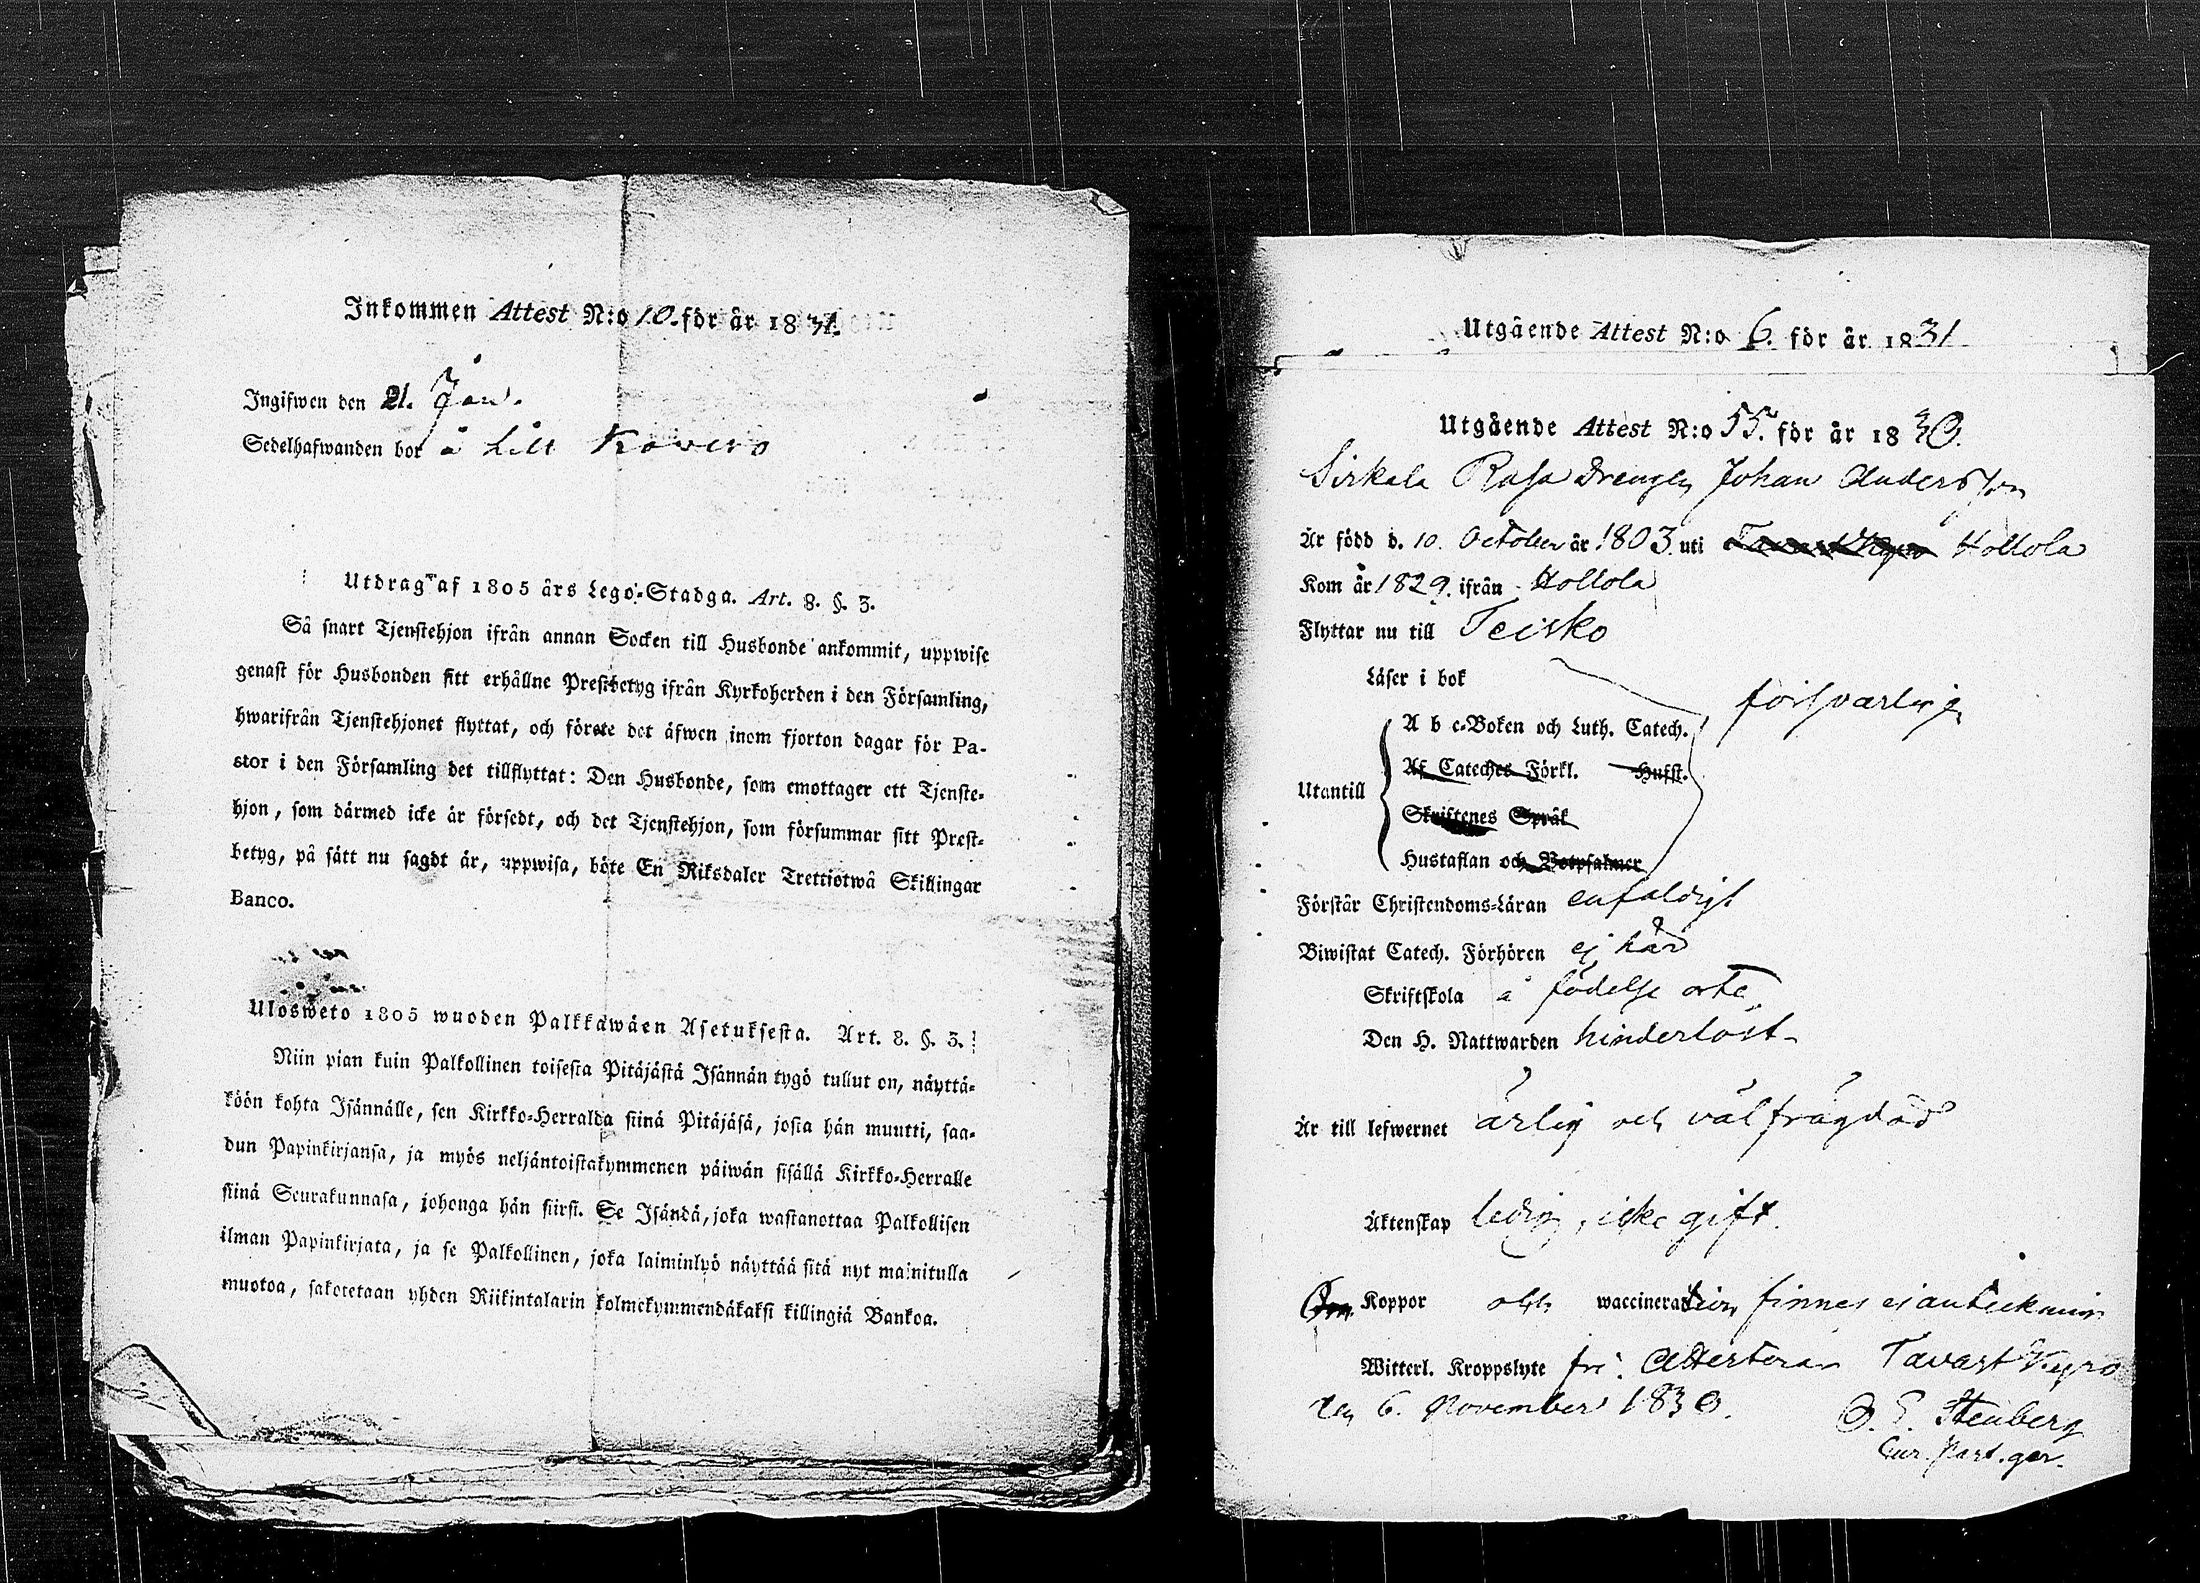 Inkommen Attest N:o 10. för år 1831.
Ingifwen den 21. Jan.
Sedelhafwanden bor å Lill Kovero
Utdrag af 1805 års Lego-Stadga. Art. 8. §. 3.
Så snart Tjenstehjon ifrån annan Socken till Husbonde ankommit, uppwise
genast för Husbonden sitt erhållne Prestbetyg ifrån Kyrkoherden i den Församling,
hwarifrån Tjenstehjonet flyttat, och förete det äfwen inom fjorton dagar för Pa-
stor i den Församling det tillflyttat: Den Husbonde, som emottager ett Tjenste-
hjon, som därmed icke är försedt, och det Tjenstehjon, som försummar sitt Prest-
betyg, på sätt nu sagdt är, uppwisa, böte En Riksdaler Trettiotwå Skillingar
Banco.
Ulosweto 1805 wuoden Palkkawäen Asetuksesta. Art. 8. §. 3.
Niin pian kuin Palkollinen toisesta Pitäjästä Isännän tygö tullut on, näyttä-
köön kohta Isännälle, sen Kirkko-Herralda siinä Pitäjäsä, josta hän muutti, saa-
dun Papinkirjansa, ja myös neljäntoistakymmenen päiwän sisällä Kirkko-Herralle
siinä Seurakunnasa, johonga hän siirsi. Se Isändä, joka wastanottaa Palkollisen
ilman Papinkirjata, ja se Palkollinen, joka laiminlyö näyttää sitä nyt mainitulla
muotoa, sakotetaan yhden Riikintalarin kolmekymmendäkaksi killingiä Bankoa.
Utgående Attest N:o 6. för år 1831
Utgående Attest N:o 55. för år 1830.
Sirkala Rasa Drengen Johan Andersson
Är född d. 10. October år 1803. uti Tavast Kyro Hollola
Kom år 1829. ifrån Hollola
Flyttar nu till Teisko
Läser i bok
försvarligen
A b c-Boken och Luth. Catech.
Af Cateches Förkl. Husft.
Utantill
Skriftenes Språk
Hustaflan och Botpsalmer
Förstår Christendoms-Läran enfaldigt
Biwistat Catech. Förhören ej här
Skriftskola å födelse orten
Den H. Nattwarden hinderlöst
Är till lefwernet ärlig och välfrägdad
Äktenskap ledig, icke gift.
Om Koppor och waccineration finnes ej anteckning
Witterl. Kroppslyte fri. Attesterar Tavast Kyro
den 6. November 1830.
O. E. Stenberg
Cur. Past. ger.